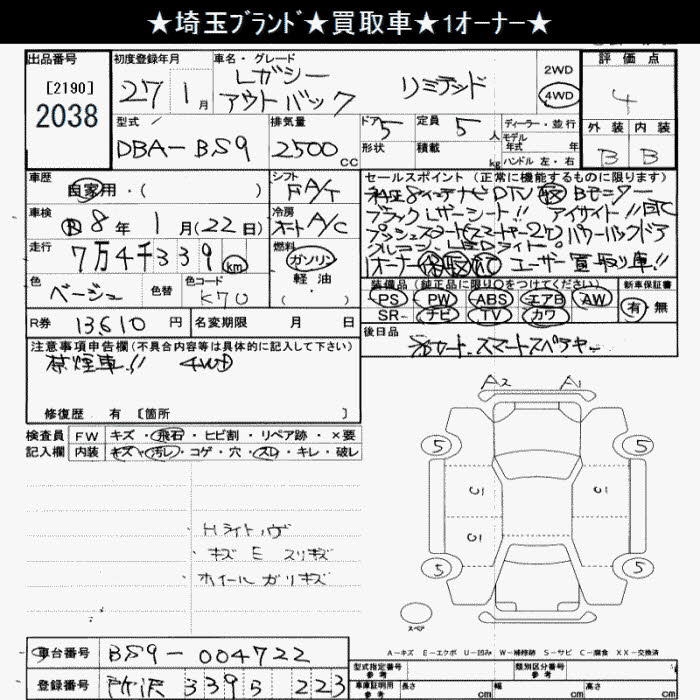 ★埼玉ﾌﾞﾗﾝﾄﾞ★買取車★1オーナー★
出品番号 初度登録年月 車名・グレード 評価点
[2190] 27 1月 レガシー アウトバック リミテッド 2WD 4WD 4
2038 外装 内装
型式 排気量 ドア 5 定員 5人 ディーラー・並行
DBA-BS9 2500cc 形状 積載 kg モデル年式 年式 B B
ハンドル 左・右
車歴 シフト セールスポイント(正常に機能するものに限ります)
自家用・( ) FA/T 純正8インチナビ DTV Bモニター
車検 8年1月(22日) 冷房 オートA/C ブラックレザーシート!! アイサイト!! ETC
走行 7万4千339km 燃料 ガソリン 軽油 プッシュスタート(スマートキー2ケ) パワーバックドア
クルコン、LEDライト。
1オーナー ユーザー買取り車!!
色 ベージュ 色替 色コード K70 装備品(純正品に限り○をつけてください) 新車保証書
PS PW ABS エアB AW 有・無
R券 13610円 名変期限 月 日 SR ナビ TV カワ
後日品
注意事項申告欄(不具合内容等は具体的に記入して下さい) スマートスペアキー
禁煙車!! 4WD
修復歴 有 [箇所 ]
検査員 FW キズ・飛石・ヒビ割・リペア跡・×要
記入欄 内装 キズ・汚レ・コゲ・穴・スレ・キレ・破レ
A2 A1
5 5
・Hライトハゲ
・キズ E スリキズ
・ホイールガリキズ
5 5
スペア
A－キズ E－エクボ U－凹み W－補修跡 S－サビ C－腐食 XX－交換済
車台番号 BS9-004722 型式指定番号 参考 類別区分番号 参考
登録番号 所沢 339 ら 223 車庫証明用 参考 長さ cm 幅 cm 高さ cm